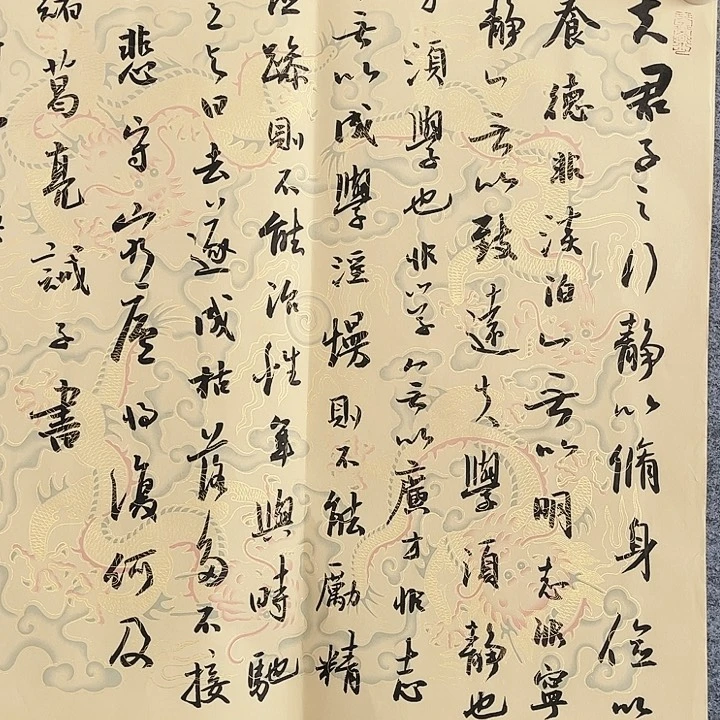 夫君子之行静以脩身儉以
養德非淡泊無以明志非寧
静無以致遠夫學须静也
才须學也非学無以廣才非志
無以成學淫慢則不能勵精
險躁則不能治性年與時馳
意与日去遂成枯落多不接
悲守窮廬将復何及
諸葛亮誡子書